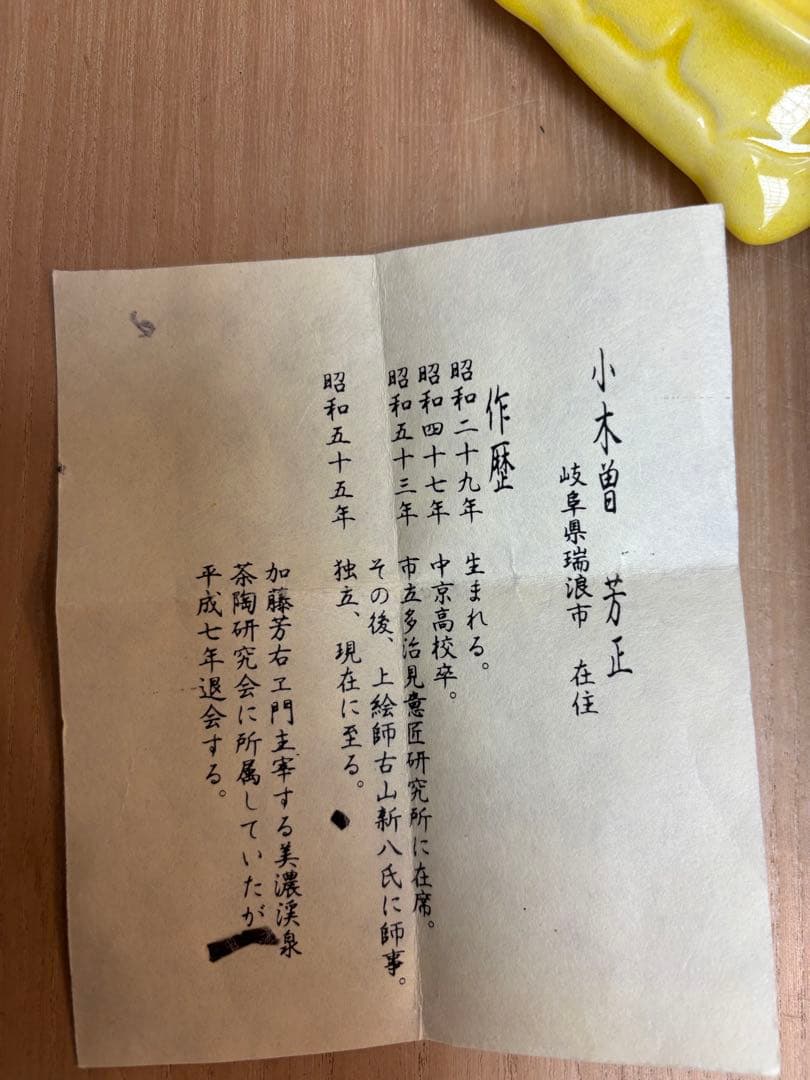 小木曽 芳正
岐阜県瑞浪市 在住
作歴
昭和二十九年 生まれる。
昭和四十七年 中京高校卒。
昭和五十三年 市立多治見意匠研究所に在席。
その後、上絵師古山新八氏に師事。
昭和五十五年 独立、現在に至る。
加藤芳右ヱ門主宰する美濃渓泉
茶陶研究会に所属していたが
平成七年退会する。